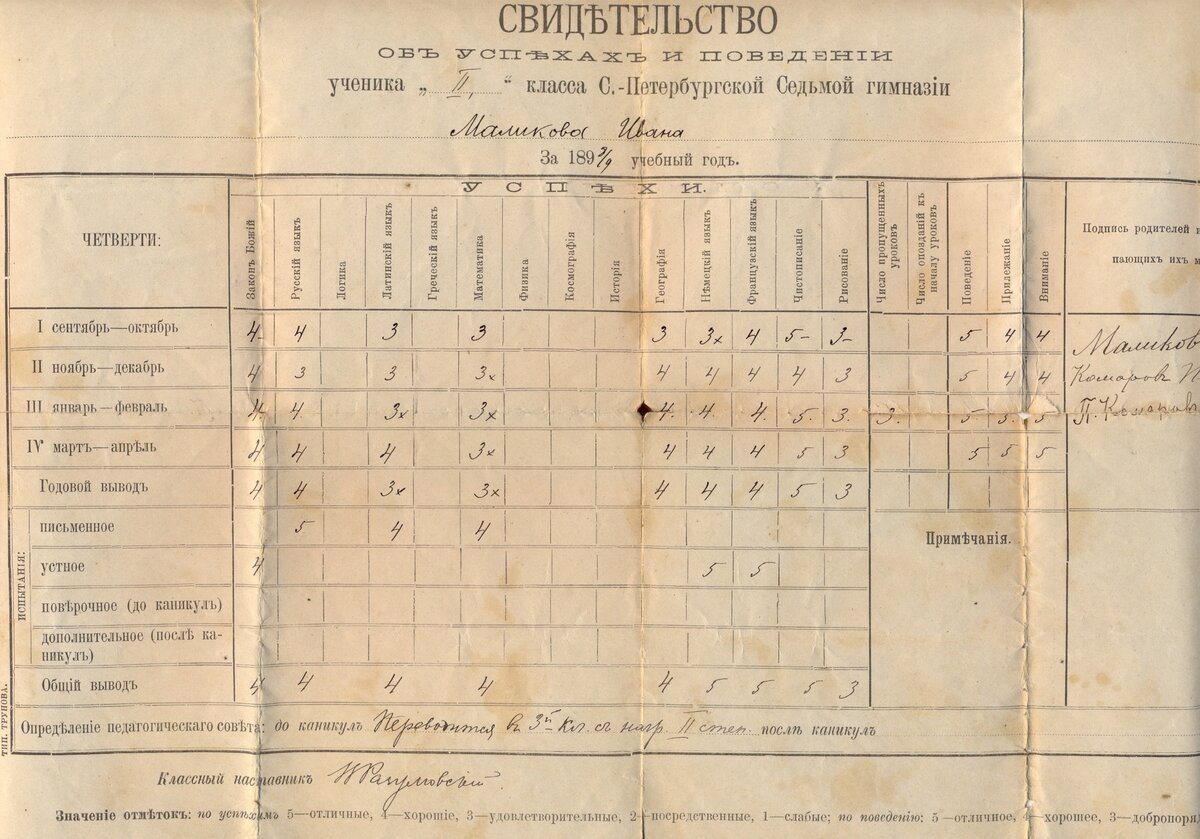 СВИДѢТЕЛЬСТВО
ОБЪ УСПѢХАХЪ И ПОВЕДЕНІИ
ученика „ II, “ класса С.-Петербургской Седьмой гимназіи
Маликова Ивана
За 1893/9 учебный годъ.
УСПѢХИ.
ЧЕТВЕРТИ: Законъ Божій Русскій языкъ Логика Латинскій языкъ Греческій языкъ Математика Физика Космографія Исторія Географія Нѣмецкій языкъ Французскій языкъ Чистописаніе Рисованіе Число пропущенныхъ уроковъ Число опозданій къ началу уроковъ Поведеніе Прилежаніе Вниманіе Подпись родителей и
пающихъ ихъ м
I сентябрь—октябрь 4- 4 3 3 3 3x 4 5- 3- 5 4 4 Маликов
II ноябрь—декабрь 4 3 3 3x 4 4 4 4 3 5 4 4 Комаровъ П
III январь—февраль 4. 4. 3x 3x 4. 4. 4. 5. 3. 3. 5. 5. 5 П. Комаров
IV мартъ—апрѣль 4 4 4 3x 4 4 4 5 3 5 5 5
Годовой выводъ 4 4 3x 3x 4 4 4 5 3
ИСПЫТАНІЯ:
письменное 5 4 4
Примѣчанія.
устное 4 5 5
повѣрочное (до каникулъ)
дополнительное (послѣ ка-
никулъ)
Общій выводъ 4 4 4 4 4 5 5 5 3
Опредѣленіе педагогическаго совѣта: до каникулъ Переводится в 3й Кл. съ нагр. II степ. послѣ каникулъ
ТИП. ТРУНОВА.
Классный наставникъ Н Разумовскій.
Значеніе отмѣтокъ: по успѣхамъ 5—отличные, 4—хорошіе, 3—удовлетворительные, 2—посредственные, 1—слабые; по поведенію: 5—отличное, 4—хорошее, 3—добропоря